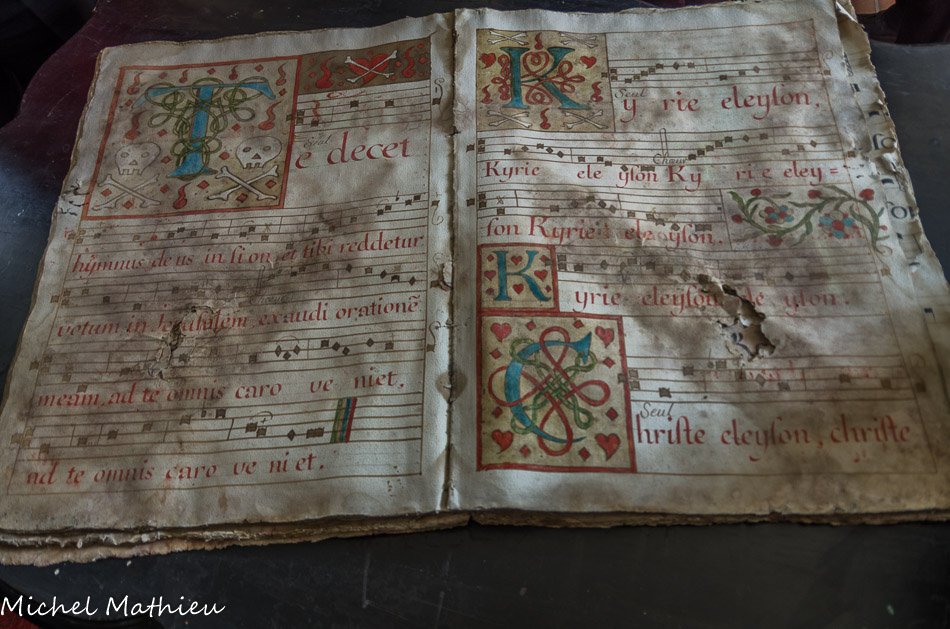 Seul
Te decet
hŷmnus deus in sion et tibi reddetur
votum in Jerusalem, exaudi orationē
meam, ad te omnis caro ve niet,
ad te omnis caro ve ni et.
Seul
Ky rie eleyson,
Chœur
Kyrie ele yson Ky ri e eley=
son Kyrie eleyson.
Kyrie eleyson ele yson.
Seul
Christe eleyson, christe
Michel Mathieu